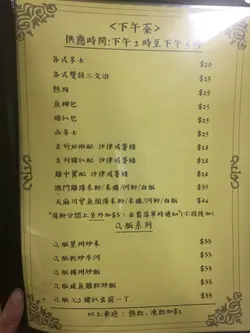 <下午茶>
供應時間:下午2時至下午5時
各式多士 $20
各式雙拼三文治 $25
熱狗 $25
魚柳包 $25
豬扒包 $25
西多士 $25
吉列 沙律或薯條
吉列豬扒配 沙律或薯條
雞中翼配 沙律或薯條
澳門雞湯米粉/米線/河粉/白飯
天麻川芎魚頭湯米粉/米線/河粉/白飯
Q版系列
Q版星州炒米 $33
Q版乾炒牛河 $33
Q版楊州炒飯 $33
Q版咸魚雞粒炒飯 $33
Q版XO豬扒公前一丁 $33
以上奉送:熱飲,凍飲加$2